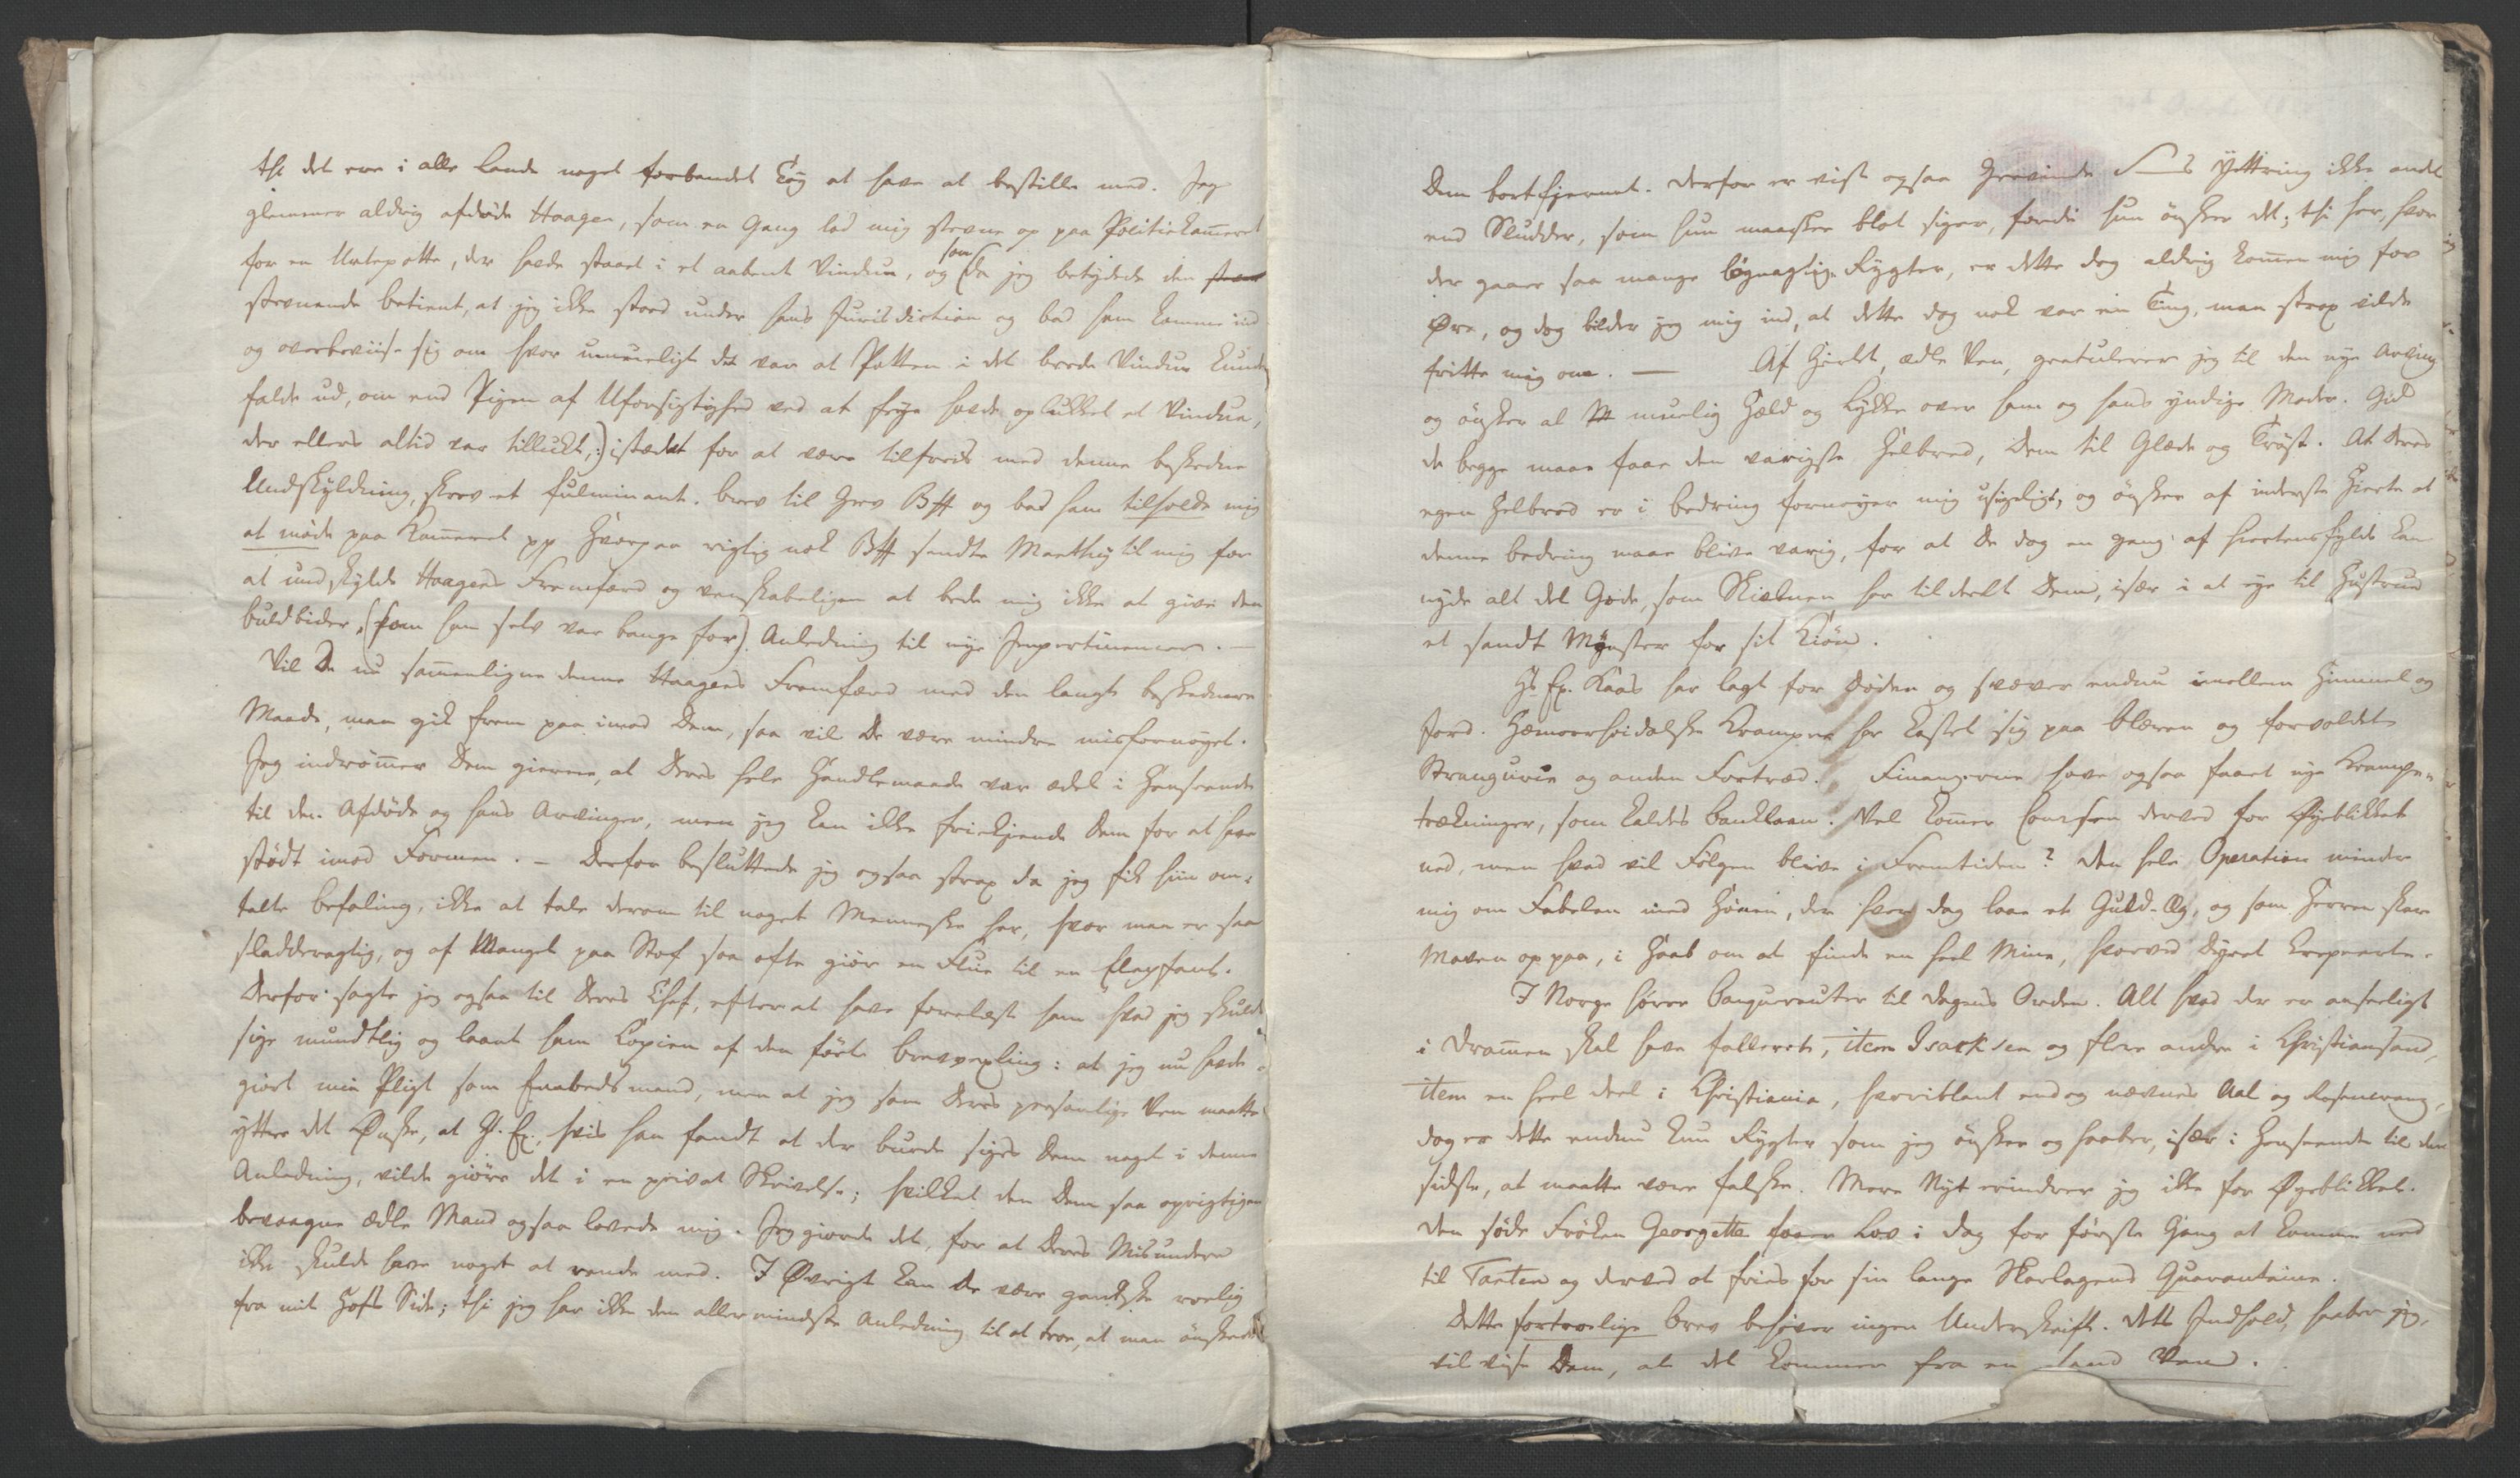 thi det ere i alle Lande noget forbandet Tøy at have at bestille med. Jeg
glemmer aldrig afdöde Haagen, som en Gang lod mig stevne op paa Politiekam̅eret
for en Urtepotte, der havde staaet i et aabent Vindue, og (da jeg betydede den
som
stevnende betient, at jeg ikke stod under hans Jurisdiction og bad ham komme ind
og overbeviise sig om hvor umueligt det var at Potten i det brede Vindue kunde
falde ud, om end Pigen af Uforsigtighed ved at feye havde oplukket et Vindue,
der ellers altid var tillukt,:) istædet for at være tilfreds med denne beskedne
Undskyldning, skrev et fulminant brev til Grev Bff og bad ham tilholde mig
at møde paa Kam̅eret pp Hvorpaa rigtig nok Bff sendte Manthey til mig for
at undskylde Haagens Fremfærd og venskabeligen at bede mig ikke at give den
buldbider, (som han selv var bange for). Anledning til nye Impertinencer. —
Vil De nu sam̅enligne denne Haagens Fremfærd med den langt beskednere
Maade, man gik frem paa imod Dem, saa vil De være mindre misfornøyet.
Jeg indröm̅er Dem gierne, at Deres hele Handlemaade var ædel i Henseende
til den Afdöde og hans Arvinger, men jeg kan ikke frikjende Dem for at have
stödt imod Formen. — Derfor besluttede jeg ogsaa strax da jeg fik hiin om-
talte befaling, ikke at tale derom til noget Menneske her, hvor man er saa
sladderagtig, og af Mangel paa Stof saa ofte giör en Flue til en Elephant.
Derfor sagte jeg ogsaa til Deres Chef, efter at have forelæst ham hvad jeg skulde
sige mundtlig og laant ham Copien af den förte brevvexling: at jeg nu havde
giort min Pligt som Embedsmand, men at jeg som Deres personlige Ven maatte
yttre det Ønske, at H. Ex., hvis han fandt at der burde siges Dem noget i denne
Anledning, vilde giöre det i en privat Skrivelse; hvilket den Dem saa oprigtigen
bevaagne ædle Mand ogsaa lovede mig. Jeg giorde det, for at Deres Misundere
ikke skulde have noget at rende med. I Øvrigt kan De være gandske roelig
fra mit Hofs Side; thi jeg har ikke den allermindste Anledning til at troe, at man önskede
Dem bortfjernet. Derfor er vist ogsaa Grevinde S—s Yttring ikke andet
end Sludder, som hun maaskee blot siger, fordi hun önsker det; thi her, hvor
der gaaer saa mange lögnagtige Rygter, er dette dog aldrig kom̅en mig for
Øre, og dog bilder jeg mig ind, at dette dog nok var een Ting, man strax vilde
fritte mig om. — Af Hiertet, ædle Ven, gratulerer jeg til den nye Arving
og önsker al muelig Held og Lykke over ham og hans yndige Moder. Gid
de begge maae faae den varigste Helbred, Dem til Glæde og Tröst. At Deres
egen Helbred er i bedring fornøyer mig usigeligt, og önsker af inderste Hierte at
denne bedring maae blive varig, for at De dog en gang af Hiertensfylde kan
nyde alt det Gode, som Skiebnen har tildeelt Dem, især i at eye til Hustrue
et sandt Mynster for sit Kiön.
Hs Ex. Kaas har lagt for Döden og svæver endnu imellem Himmel og
Jord. Hæmorrhoidalske Kramper har kastet sig paa Blæren og forvoldet
Strangurie og anden Fortræd. Finanzerne have ogsaa faaet nye Krampe-
trækninger, som kaldes Banklaan. Vel kom̅er Coursen derved for Øyeblikket
ned, men hvad vil Fölgen blive i Fremtiden? Den hele Operation minder
mig om Fabelen med Hönen, der hver dag laae et Guld-Æg, og som Herren skar
Maven op paa, i Haab om at finde en heel Mine, hvorved Dyret krepeerte.
I Norge hörer Banqueroutter til Dagens Orden. Alt hvad der er anseeligt
i Dram̅en skal have falleret, item Isacksen og flere andre i Christiansand,
item en heel deel i Christiania, hvoriblant endog nævnes Aal og Rosencrang,
dog er dette endnu kun Rygter som jeg önsker og haaber, især i Henseende til den
sidste, at maatte være falske. Mere Nyt erindrer jeg ikke for Øyeblikket.
Den söde Fröken Georgette faaer Lov i Dag for förste Gang at komme ned
til Tanten og derved at fries for sin lange Skarlagens Quarantaine.
Dette fortroelige brev behöver ingen Underskrift. Dets Indhold, haaber jeg,
vil viise Dem, at det kommer fra en sand Ven.